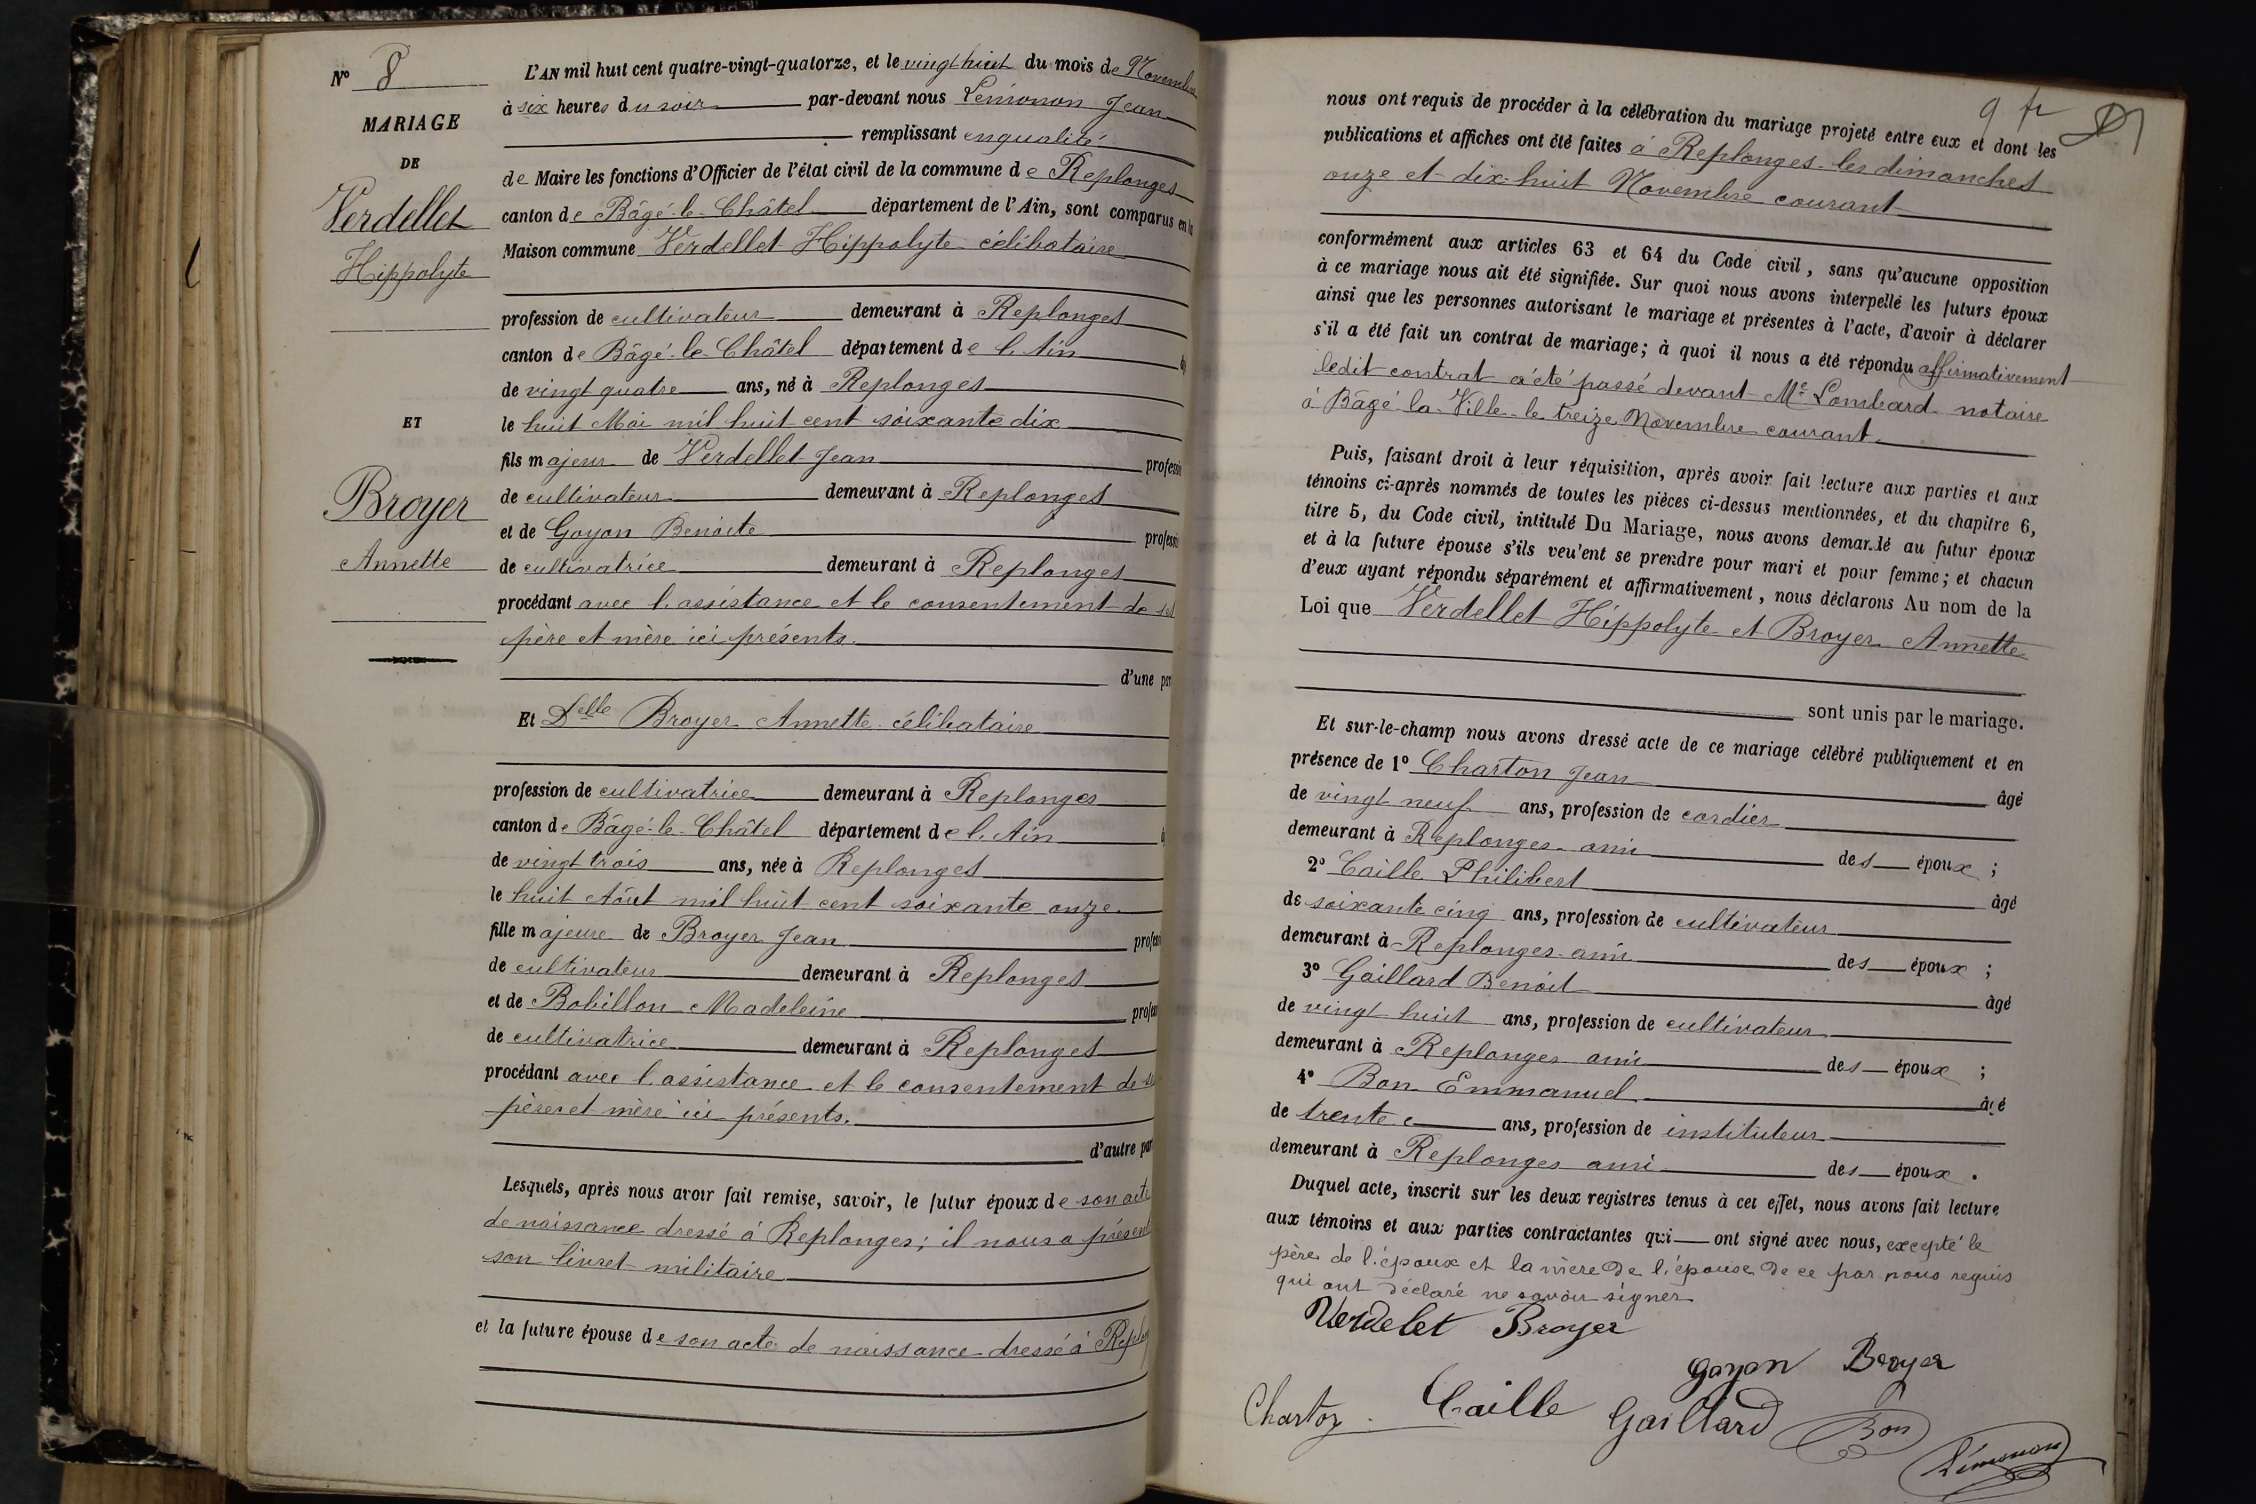 N° 8
MARIAGE
DE
Verdellet
Hippolyte
ET
Broyer
Annette
L'AN mil huit cent quatre-vingt-quatorze, et le vingt huit du mois de Novembre
à six heures du soir par-devant nous Lémonon Jean
remplissant en qualité
de Maire les fonctions d'Officier de l'état civil de la commune de Replonges
canton de Bâgé-le-Châtel département de l'Ain, sont comparus en la
Maison commune Verdellet Hippolyte célibataire
profession de cultivateur demeurant à Replonges
canton de Bâgé-le-Châtel département de l'Ain
de vingt quatre ans, né à Replonges
le huit Mai mil huit cent soixante dix
fils majeur de Verdellet Jean professi
de cultivateur demeurant à Replonges
et de Goyon Benoite professi
de cultivatrice demeurant à Replonges
procédant avec l'assistance et le consentement de ses
père et mère ici présents.
d'une par
Et Delle Broyer Annette célibataire
profession de cultivatrice demeurant à Replonges
canton de Bâgé-le-Châtel département de l'Ain
de vingt trois ans, née à Replonges
le huit Août mil huit cent soixante onze
fille majeure de Broyer Jean profess
de cultivateur demeurant à Replonges
et de Bobillon Madeleine profess
de cultivatrice demeurant à Replonges
procédant avec l'assistance et le consentement de ses
père et mère ici présents.
d'autre par
Lesquels, après nous avoir fait remise, savoir, le futur époux de son acte
de naissance dressé à Replonges; il nous a présent
son livret militaire
et la future épouse de son acte de naissance dressé à Replon
9 fr
nous ont requis de procéder à la célébration du mariage projeté entre eux et dont les
publications et affiches ont été faites à Replonges les dimanches
onze et dix-huit Novembre courant
conformément aux articles 63 et 64 du Code civil, sans qu'aucune opposition
à ce mariage nous ait été signifiée. Sur quoi nous avons interpellé les futurs époux
ainsi que les personnes autorisant le mariage et présentes à l'acte, d'avoir à déclarer
s'il a été fait un contrat de mariage; à quoi il nous a été répondu affirmativement
ledit contrat a été passé devant Me Lombard notaire
à Bâgé-la-Ville le treize Novembre courant.
Puis, faisant droit à leur réquisition, après avoir fait lecture aux parties et aux
témoins ci-après nommés de toutes les pièces ci-dessus mentionnées, et du chapitre 6,
titre 5, du Code civil, intitulé Du Mariage, nous avons demandé au futur époux
et à la future épouse s'ils veulent se prendre pour mari et pour femme; et chacun
d'eux ayant répondu séparément et affirmativement, nous déclarons Au nom de la
Loi que Verdellet Hippolyte et Broyer Annette
sont unis par le mariage.
Et sur-le-champ nous avons dressé acte de ce mariage célébré publiquement et en
présence de 1° Charton Jean âgé
de vingt neuf ans, profession de cordier
demeurant à Replonges ami des époux ;
2° Caille Philibert âgé
de soixante cinq ans, profession de cultivateur
demeurant à Replonges ami des époux ;
3° Gaillard Benoit âgé
de vingt huit ans, profession de cultivateur
demeurant à Replonges ami des époux ;
4° Bon Emmanuel âgé
de trente ans, profession de instituteur
demeurant à Replonges ami des époux.
Duquel acte, inscrit sur les deux registres tenus à cet effet, nous avons fait lecture
aux témoins et aux parties contractantes qui ont signé avec nous, excepté le
père de l'époux et la mère de l'épouse de ce par nous requis
qui ont déclaré ne savoir signer
Verdelet Broyer
Goyon Broyer
Charton Caille Gaillard Bon
Lémonon